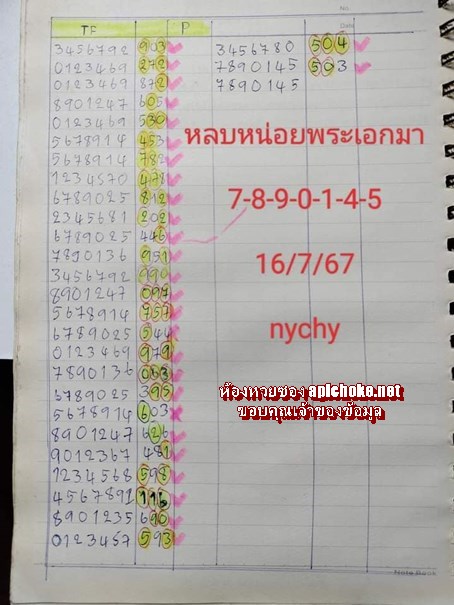 No.
Date
TF P
3456792 903
0123469 272
0123469 872
8901247 605
0123469 530
5678914 453
5678914 782
1234570 478
6789025 812
2345681 202
6789025 446
7890136 951
3456792 990
8901247 097
5678914 757
6789025 544
0123469 979
7890136 063
6789025 395
5678914 603
8901247 626
9012367 481
1234568 598
4567891 116
8901235 690
0123457 593
3456780 504
7890145 503
7890145
หลบหน่อยพระเอกมา
7-8-9-0-1-4-5
16/7/67
nychy
ห้องหวยซอง apichoke.net
ขอบคุณเจ้าของข้อมูล